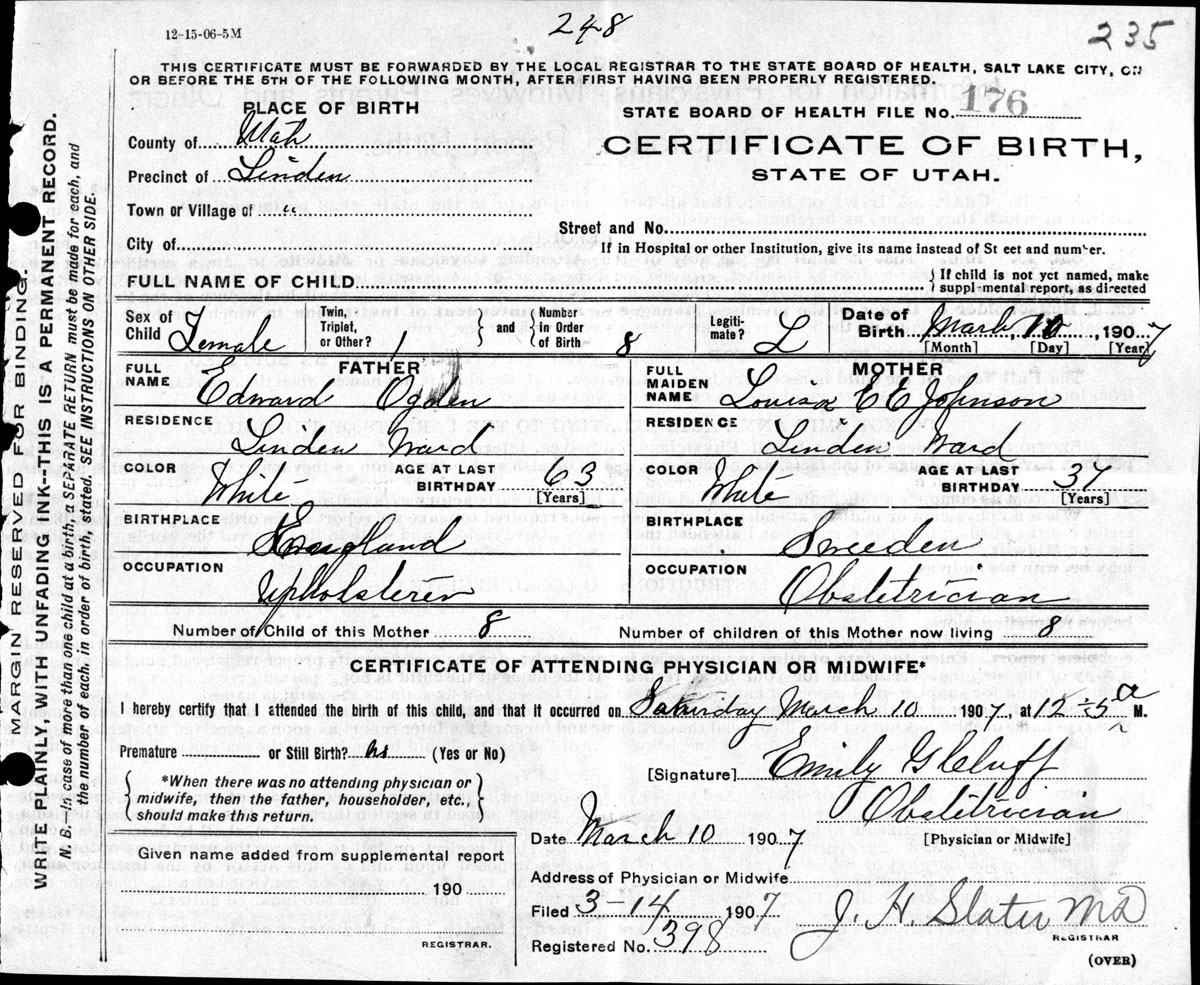 248
235
12-15-06-5M
THIS CERTIFICATE MUST BE FORWARDED BY THE LOCAL REGISTRAR TO THE STATE BOARD OF HEALTH, SALT LAKE CITY, ON
OR BEFORE THE 5TH OF THE FOLLOWING MONTH, AFTER FIRST HAVING BEEN PROPERLY REGISTERED.
PLACE OF BIRTH
STATE BOARD OF HEALTH FILE No. 176
County of Utah
CERTIFICATE OF BIRTH,
Precinct of Linden
STATE OF UTAH.
Town or Village of "
Street and No.
City of
If in Hospital or other Institution, give its name instead of St eet and number.
FULL NAME OF CHILD
} If child is not yet named, make
suppl-mental report, as directed
Sex of Child Female Twin, Triplet, or Other? 1 } and { Number in Order of Birth 8 Legiti-mate? L Date of Birth March, 10, 1907
[Month] [Day] [Year]
FATHER MOTHER
FULL NAME Edward Ogden FULL MAIDEN NAME Louisa C E Johnson
RESIDENCE Linden Ward RESIDENCE Linden Ward
COLOR White AGE AT LAST BIRTHDAY 63 [Years] COLOR White AGE AT LAST BIRTHDAY 37 [Years]
BIRTHPLACE England BIRTHPLACE Sweeden
OCCUPATION Upholsterer OCCUPATION Obstetrician
Number of Child of this Mother 8 Number of children of this Mother now living 8
CERTIFICATE OF ATTENDING PHYSICIAN OR MIDWIFE*
I hereby certify that I attended the birth of this child, and that it occurred on Saturday March 10 1907, at 12-5 a M.
Premature or Still Birth? (Yes or No)
{ *When there was no attending physician or
midwife, then the father, householder, etc.,
should make this return. }
[Signature] Emily G Cluff
Obstetrician
Date March 10 1907 [Physician or Midwife]
Given name added from supplemental report
190
REGISTRAR.
Address of Physician or Midwife
Filed 3-14 1907 J. H. Slater MD
REGISTRAR
Registered No. 398
(OVER)
MARGIN RESERVED FOR BINDING.
WRITE PLAINLY WITH UNFADING INK-THIS IS A PERMANENT RECORD.
N. B.-In case of more than one child at a birth, a SEPARATE RETURN must be made for each, and
the number of each, in order of birth, stated. SEE INSTRUCTIONS ON OTHER SIDE.